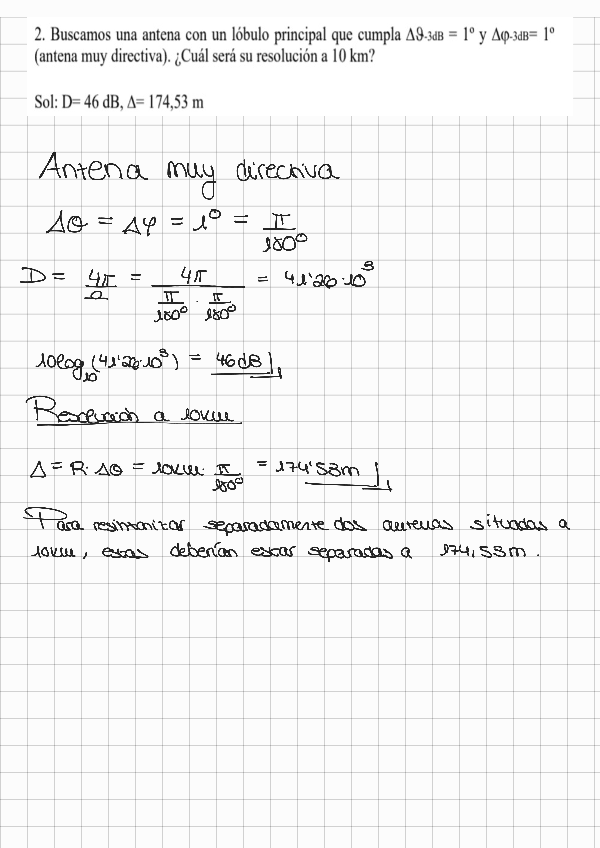 2. Buscamos una antena con un lóbulo principal que cumpla Δϑ-3dB = 1º y Δφ-3dB= 1º
(antena muy directiva). ¿Cuál será su resolución a 10 km?
Sol: D= 46 dB, Δ= 174,53 m
Antena muy directiva
Δθ = Δφ = 1º = π/180º
D = 4π/Ω = 4π/(π/180º · π/180º) = 41'26·10³
10log₁₀(41'26·10³) = 46dB
Resolución a 10km
Δ = R·Δθ = 10km·π/180º = 174'53m
Para resintonizar separadamente dos antenas situadas a
10km, estas deberían estar separadas a 174,53m.